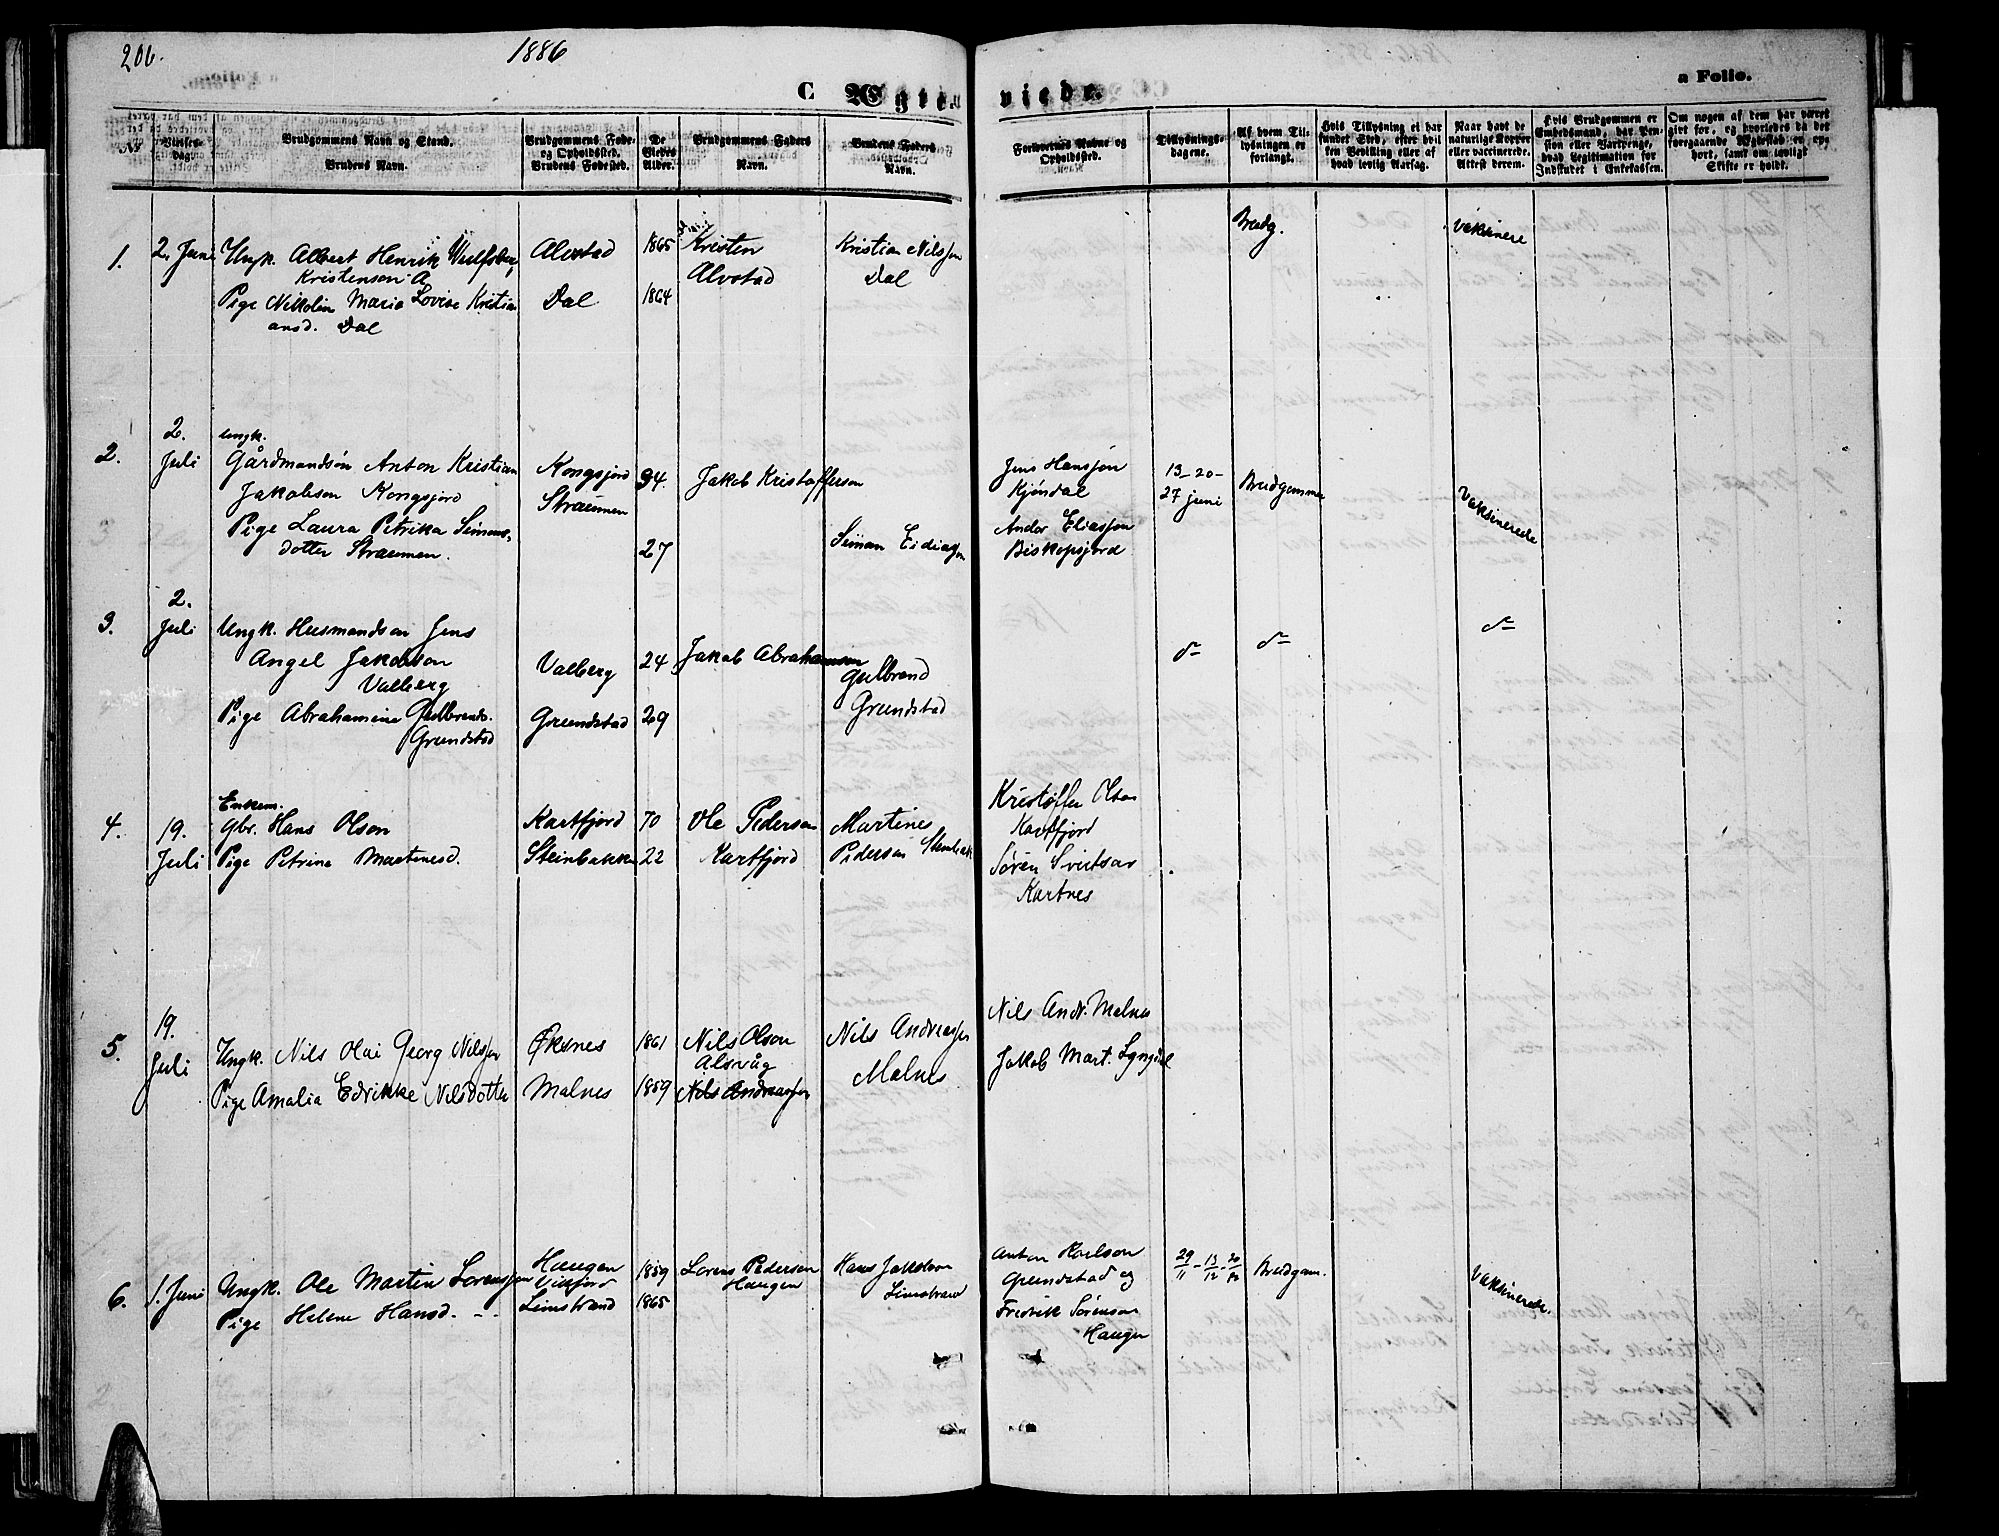 206.
1886
C Ægte-
viede.
a Folio.
No
Vielses-Dag.
Brudgommens Navn og Stand.
Brudens Navn.
Brudgommens Føde- og Opholdssted.
Brudens Fødested.
De Viedes Alder.
Brudgommens Faders Navn.
Brudens Faders Navn.
Forlovernes Navne og Opholdssted.
Tillysnings-dagene.
Af hvem Til-lysningen er forlangt.
Hvis Tillysning ei har fundet Sted, efter hvil-ken Bevilling eller af hvad lovlig Aarsag.
Naar havt de naturlige Kopper eller vaccinerede. Attest derom.
Hvis Brudgommen er Embedsmand, har Pen-sion eller Vartpenge, hvad Legitimation for Indskudet i Enkekassen.
Om nogen af dem har været gift for, og hvorledes da det foregaaende Ægteskab er op-hørt, samt om lovligt Skifte er holdt.
1.
2. Juni
Ungk. Albert Henrik Wulfsberg
Kristenson A.
Pige Nikolin Maria Lovise Kristi
ansd. Dal
Alvstad
Dal
1865
1864
Kristen
Alvstad
Kristian Nilssen
Dal
Brudg.
Vaksinere
2.
2.
Juli
Ungk.
Gårdmandsön Anton Kristian
Jakobson Kongsjord
Pige Laura Petrika Simons-
dotter Straumen.
Kongsjord
Straumen
34.
27
Jakob Kristofferson
Simon
Jens Hansson
Kjöndal
Andor Eliasson
Biskopsjord
13 - 20 -
27 juni
Brudgommen
Vaksinerede
3.
2.
Juli
Ungk. Husmandson Jens
Angel Jakobson
Valberg
Pige Abrahamine Gulbrands.
Grundstad
Valberg
Grundstad
24
29
Jakob Abrahamson
Gulbrand
Grundstad
do
do
do
4.
19.
Juli
Enkem.
Gbr. Hans Olson
Pige Petrina Martinesd.
Kartfjord
Steinbakken
70
22
Ole Pederson
Kartfjord
Martines
Pederson Steinbak
Kristoffer Olson
Kartfjord
Sören
Kartnes
5.
19.
Juli
Ungk. Nils Olai Georg Nilsson
Pige Amalia Edrikke Nilsdotter
Øksnes
Malnes
1861
1859
Nils Olson
Alsvåg
Nils Andreasson
Nils Andreasson
Malnes
Nils Andr. Malnes
Jakob Mart.
6.
1. Juni
Ungk. Ole Martin Lorensson
Pige Helene Hansd. - -
Haugen
Limstrand
1859
1865
Lorens Pederson
Haugen
Hans Jakobson
Limstrand
Anton Karlson
Grundstad og
Fredrik Sörenson
Haugen
29/11 - 13/12 - 20/12
Brudgom.
Vaksinerede.